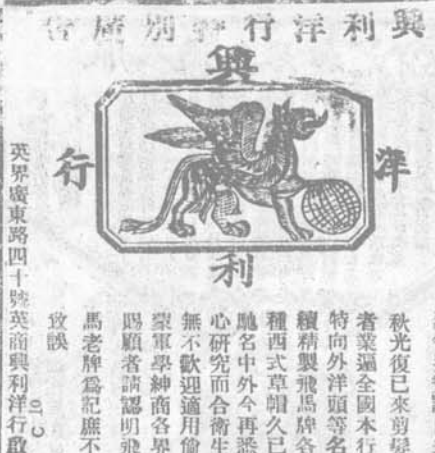 興利洋行特別廣告
興
洋
利
行
秋光復已來剪髮
者業遍全國本行
特向外洋頭等名
續精製飛馬牌各
種西式草帽久已
馳名中外今再悉
心研究而合衛生
無不歡迎適用倘
蒙軍學紳商各界
賜顧者請認明飛
馬老牌爲記庶不
致誤
英界廣東路四十號英商興利洋行啟